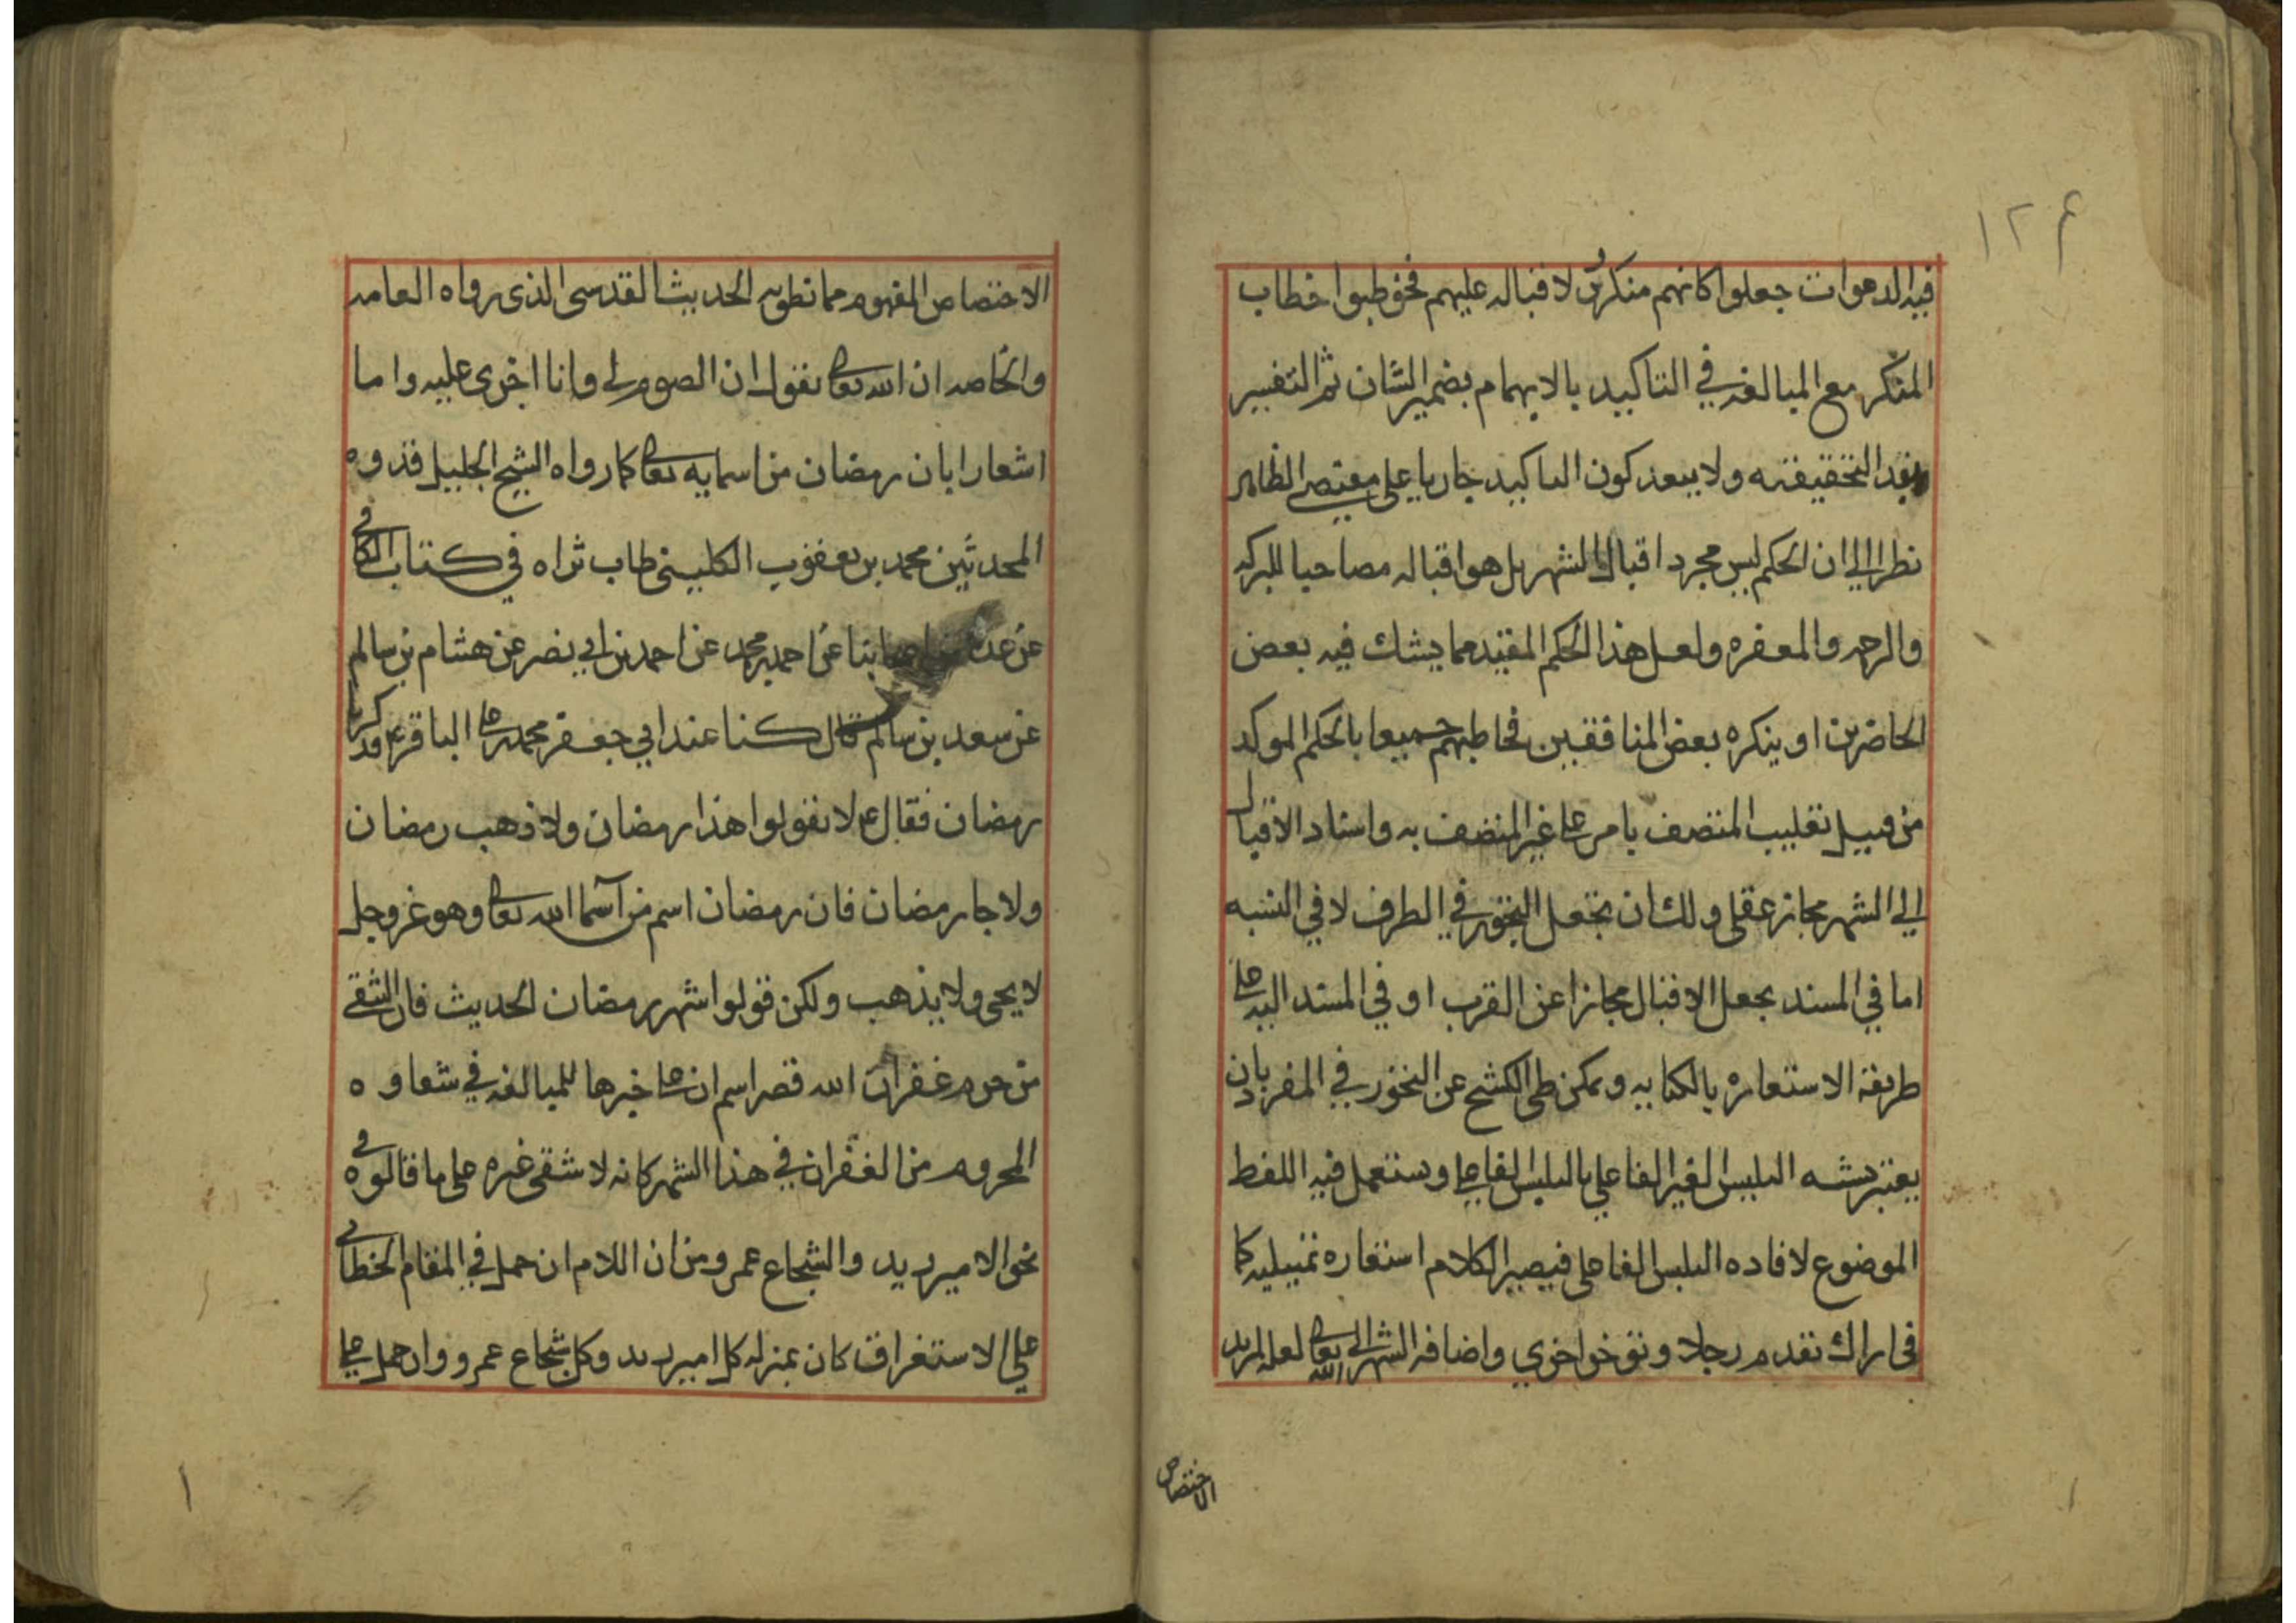 ١٢۴
فيه الدعوات جعلوا كانهم منكرين لاقباله عليهم فخوطبوا خطاب
المنكر مع المبالغه في التاكيد بالابهام بضمير الشان ثم التفسير
التحقيقيه ولا يبعد كون التاكيد جاريا على مقتضى الظاهر
نظرا الى ان الحكم ليس مجرد اقبال الشهر بل هو اقباله مصاحبا للبركه
والرحمه والمغفره ولعل هذا الحكم المقيد مما يشك فيه بعض
الحاضرين او ينكره بعض المنافقين فخاطبهم جميعا بالحكم الموكد
من قبيل تغليب المتصف بامر على غير المتصف به واسناد الاقبال
الي الشهر مجاز عقلي ولك ان تجعل التجوز في الطرف لا في النسبه
اما في المسند بجعل الاقبال مجازا عن القرب او في المسند اليه على
طريقة الاستعاره بالكنايه ويمكن طي الكشح عن التجوز في المفرد بان
يعتبر تشبه التلبس الغير الفاعلي بالتلبس الفاعلي ويستعمل فيه اللفظ
الموضوع لافاده التلبس الفاعلي فيصير الكلام استعاره تمثيليه كما
في اراك تقدم رجلا وتؤخر اخري واضافه الشهر الى الله تعالى لعله لمزيد
الاختصاص
الاختصاص المفهوم مما نطق به الحديث القدسي الذي رواه العامه
والخاصه ان الله تعالى يقول ان الصوم لي وانا اجزى عليه واما
اشعارا بان رمضان من اسمايه تعالى كما رواه الشيخ الجليل قدوه
المحدثين محمد بن يعقوب الكليني طاب ثراه في كتاب الكافي
عن عدة من اصحابنا عن احمد بن محمد عن احمد بن ابي نصر عن هشام بن سالم
عن سعد بن سالم قال كنا عند ابي جعفر محمد بن على الباقر ع فذكرنا
رمضان فقال ع لا تقولوا هذا رمضان ولا ذهب رمضان
ولا جا رمضان فان رمضان اسم من اسما الله تعالى وهو عز وجل
لا يجي ولا يذهب ولكن قولوا شهر رمضان الحديث فان الشقي
من حرم غفران الله قصر اسم ان على خبرها للمبالغه في شقاوه
المحروم من الغفران في هذا الشهر كانه لا شقى غيره على ما قالوه في
نحو الامير زيد والشجاع عمرو من ان اللام ان حمل في المقام الخطابي
على الاستغراق كان بمنزله كل امير زيد وكل شجاع عمرو وان حمل على